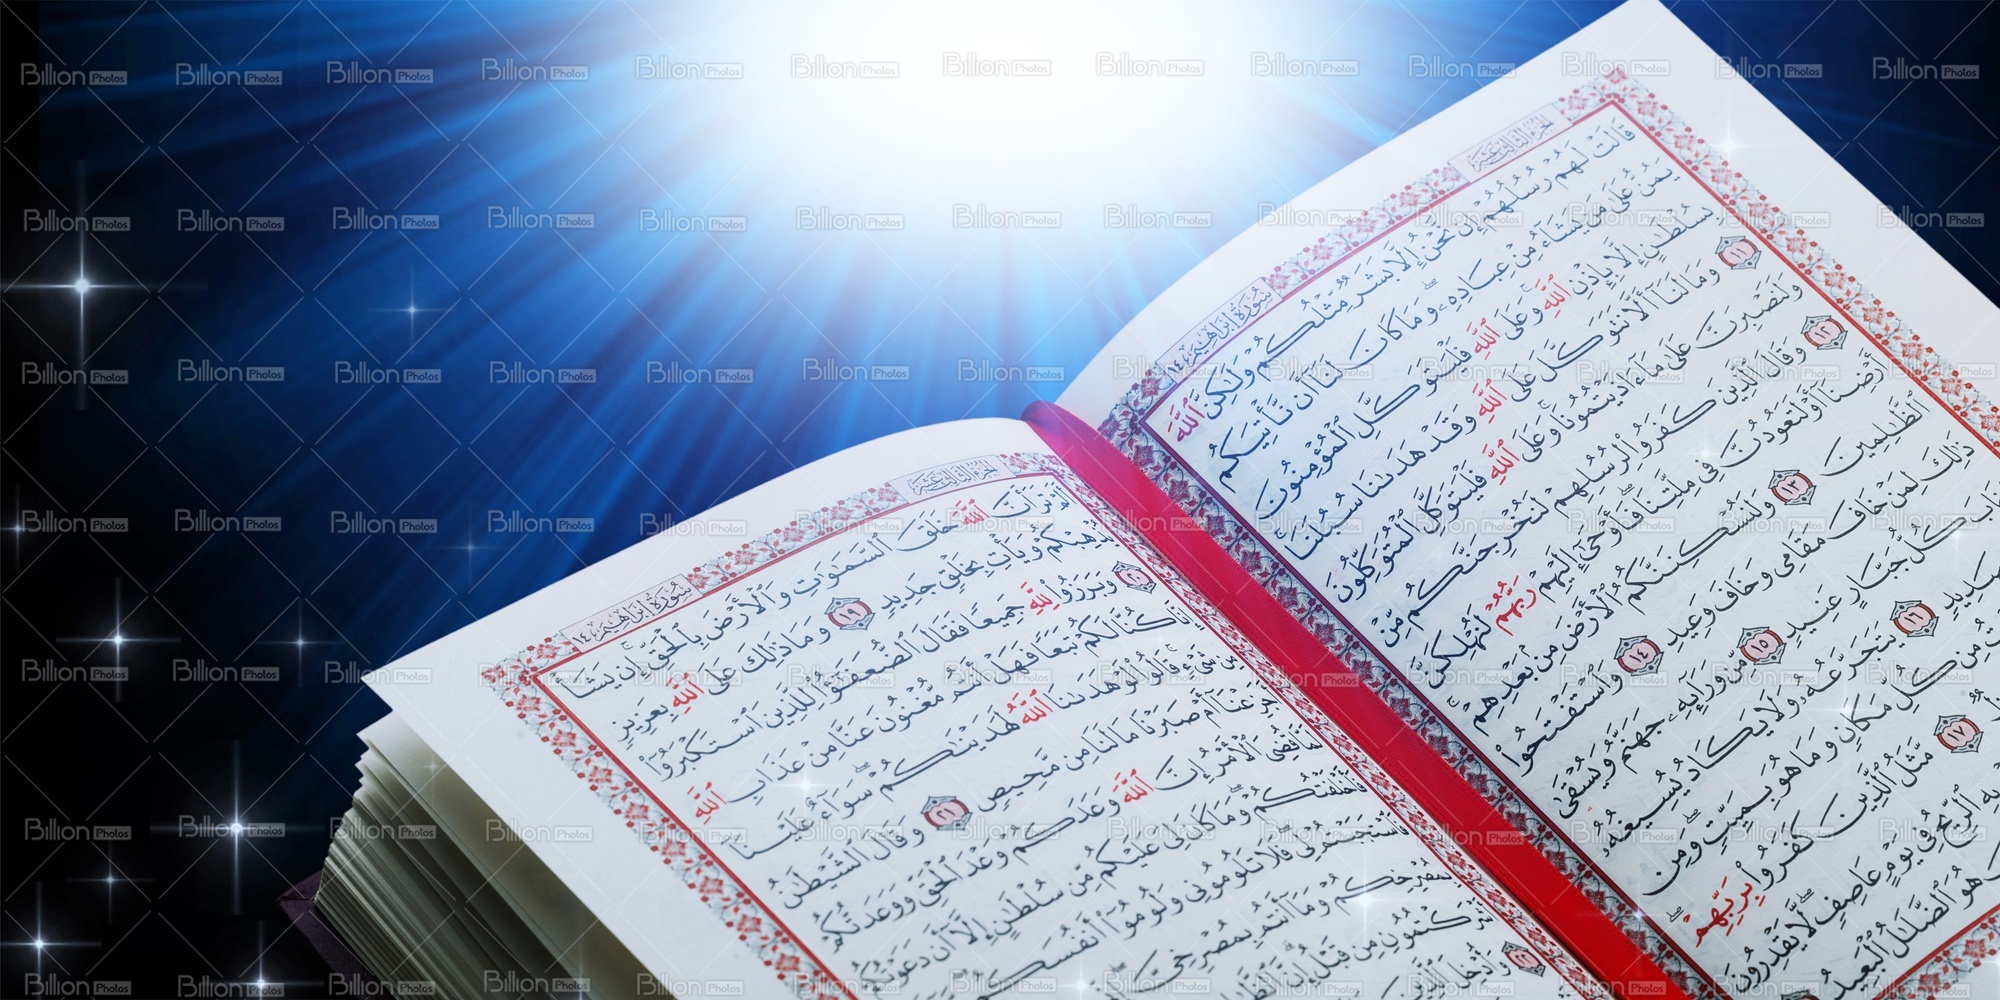 الجزء الثالث عشر
سورة إبراهيم ١٤
قَالَتْ لَهُمْ رُسُلُهُمْ إِن نَّحْنُ إِلَّا بَشَرٌ مِّثْلُكُمْ وَلَٰكِنَّ ٱللَّهَ
يَمُنُّ عَلَىٰ مَن يَشَآءُ مِنْ عِبَادِهِۦ ۖ وَمَا كَانَ لَنَآ أَن نَّأْتِيَكُم
بِسُلْطَٰنٍ إِلَّا بِإِذْنِ ٱللَّهِ ۚ وَعَلَى ٱللَّهِ فَلْيَتَوَكَّلِ ٱلْمُؤْمِنُونَ
١١ وَمَا لَنَآ أَلَّا نَتَوَكَّلَ عَلَى ٱللَّهِ وَقَدْ هَدَىٰنَا سُبُلَنَا ۚ
وَلَنَصْبِرَنَّ عَلَىٰ مَآ ءَاذَيْتُمُونَا ۚ وَعَلَى ٱللَّهِ فَلْيَتَوَكَّلِ ٱلْمُتَوَكِّلُونَ
١٢ وَقَالَ ٱلَّذِينَ كَفَرُوا۟ لِرُسُلِهِمْ لَنُخْرِجَنَّكُم مِّنْ
أَرْضِنَآ أَوْ لَتَعُودُنَّ فِى مِلَّتِنَا ۖ فَأَوْحَىٰٓ إِلَيْهِمْ رَبُّهُمْ لَنُهْلِكَنَّ
ٱلظَّٰلِمِينَ ١٣ وَلَنُسْكِنَنَّكُمُ ٱلْأَرْضَ مِنۢ بَعْدِهِمْ ۚ
ذَٰلِكَ لِمَنْ خَافَ مَقَامِى وَخَافَ وَعِيدِ ١٤ وَٱسْتَفْتَحُوا۟
كُلُّ جَبَّارٍ عَنِيدٍ ١٥ مِّن وَرَآئِهِۦ جَهَنَّمُ وَيُسْقَىٰ
صَدِيدٍ ١٦ يَتَجَرَّعُهُۥ وَلَا يَكَادُ يُسِيغُهُۥ
مِن كُلِّ مَكَانٍ وَمَا هُوَ بِمَيِّتٍ ۖ وَمِن
١٧ مَّثَلُ ٱلَّذِينَ كَفَرُوا۟ بِرَبِّهِمْ ۖ
بِهِ ٱلرِّيحُ فِى يَوْمٍ عَاصِفٍ ۖ لَّا يَقْدِرُونَ
هُوَ ٱلضَّلَٰلُ ٱلْبَعِيدُ
الجزء الثالث عشر
سورة إبراهيم ١٤
أَلَمْ تَرَ أَنَّ ٱللَّهَ خَلَقَ ٱلسَّمَٰوَٰتِ وَٱلْأَرْضَ بِٱلْحَقِّ ۚ إِن يَشَأْ
يُذْهِبْكُمْ وَيَأْتِ بِخَلْقٍ جَدِيدٍ ١٩ وَمَا ذَٰلِكَ عَلَى ٱللَّهِ بِعَزِيزٍ
٢٠ وَبَرَزُوا۟ لِلَّهِ جَمِيعًا فَقَالَ ٱلضُّعَفَٰٓؤُا۟ لِلَّذِينَ ٱسْتَكْبَرُوٓا۟
إِنَّا كُنَّا لَكُمْ تَبَعًا فَهَلْ أَنتُم مُّغْنُونَ عَنَّا مِنْ عَذَابِ ٱللَّهِ
مِن شَىْءٍ ۚ قَالُوا۟ لَوْ هَدَىٰنَا ٱللَّهُ لَهَدَيْنَٰكُمْ ۖ سَوَآءٌ عَلَيْنَآ
أَجَزِعْنَآ أَمْ صَبَرْنَا مَا لَنَا مِن مَّحِيصٍ ٢١ وَقَالَ ٱلشَّيْطَٰنُ
لَمَّا قُضِىَ ٱلْأَمْرُ إِنَّ ٱللَّهَ وَعَدَكُمْ وَعْدَ ٱلْحَقِّ وَوَعَدتُّكُمْ
فَأَخْلَفْتُكُمْ ۖ وَمَا كَانَ لِىَ عَلَيْكُم مِّن سُلْطَٰنٍ إِلَّآ أَن دَعَوْتُكُمْ
فَٱسْتَجَبْتُمْ لِى ۖ فَلَا تَلُومُونِى وَلُومُوٓا۟ أَنفُسَكُم ۖ
بِمُصْرِخِكُمْ وَمَآ أَنتُم بِمُصْرِخِىَّ ۖ
أَشْرَكْتُمُونِ مِن قَبْلُ ۗ إِنَّ ٱلظَّٰلِمِينَ
٢٢ وَأُدْخِلَ ٱلَّذِينَ